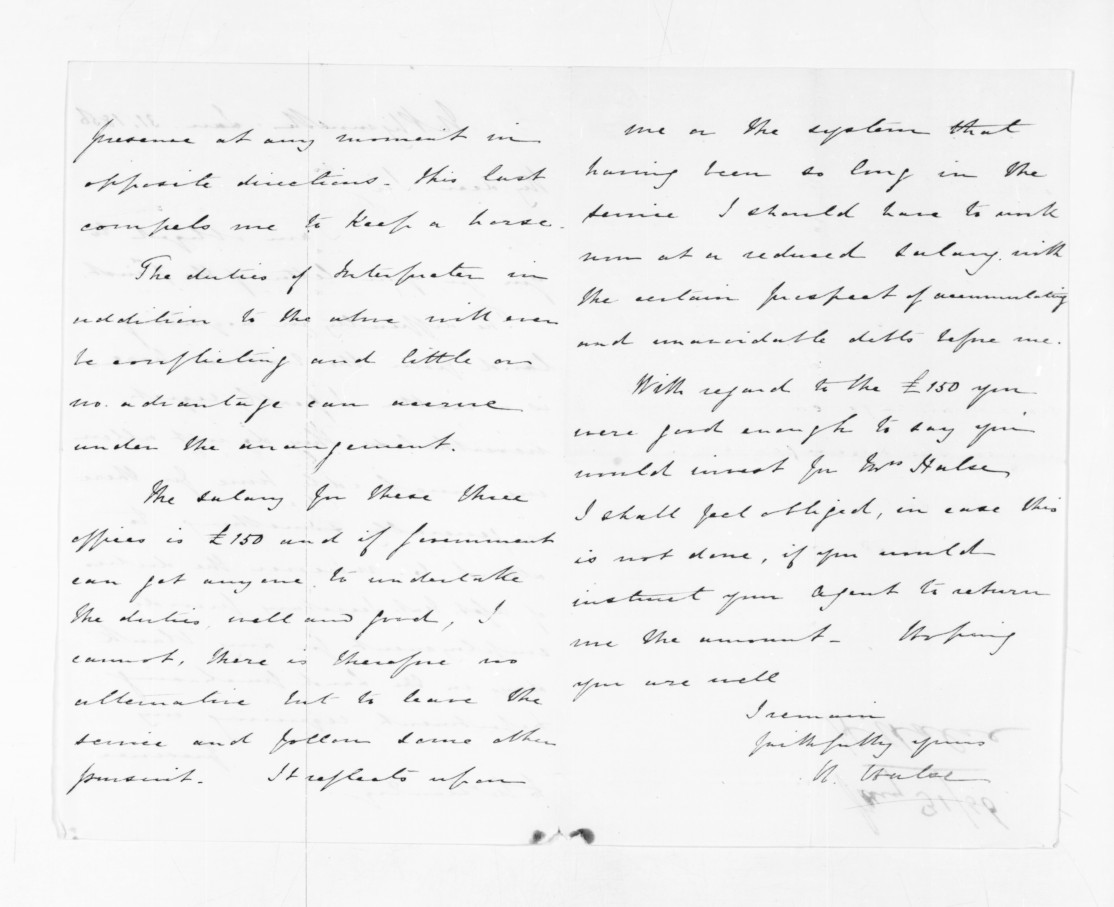 presence at any moment in
opposite directions. This last
compels me to keep a horse.
The duties of Interpreter in
addition to the above will even
be conflicting and little or
no advantage can accrue
under the arrangement.
The salary for these three
offices is £150 and if Government
can get anyone to undertake
the duties, well and good, I
cannot, there is therefore no
alternative but to leave the
service and follow some other
pursuit. It reflects upon
me or the system that
having been so long in the
service I should have to work
now at a reduced salary with
the certain prospect of accumulating
and unavoidable debts before me.
With regard to the £150 you
were good enough to say you
would invest for Mrs Halse
I shall feel obliged, in case this
is not done, if you would
instruct your agent to return
me the amount - Hoping
you are well
I remain
faithfully yours
H. Halse